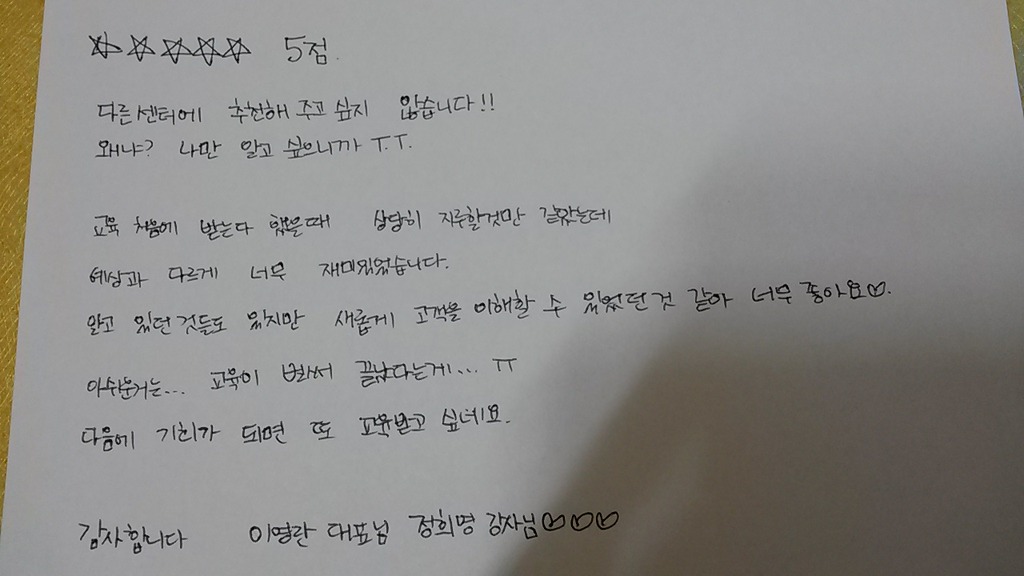 ☆☆☆☆☆ 5점.
다른센터에 추천해 주고 싶지 않습니다!!
왜냐? 나만 알고 싶으니까 T.T.
교육 처음에 받는다 했을때 상당히 지루할것만 같았는데
예상과 다르게 너무 재미있었습니다.
알고 있던 것들도 있지만 새롭게 고객을 이해할 수 있었던 것 같아 너무 좋아요♡.
아쉬운거는... 교육이 벌써 끝났다는게... TT
다음에 기회가 되면 또 교육받고 싶네요.
감사합니다 이영란 대표님 정희명 강사님♡♡♡